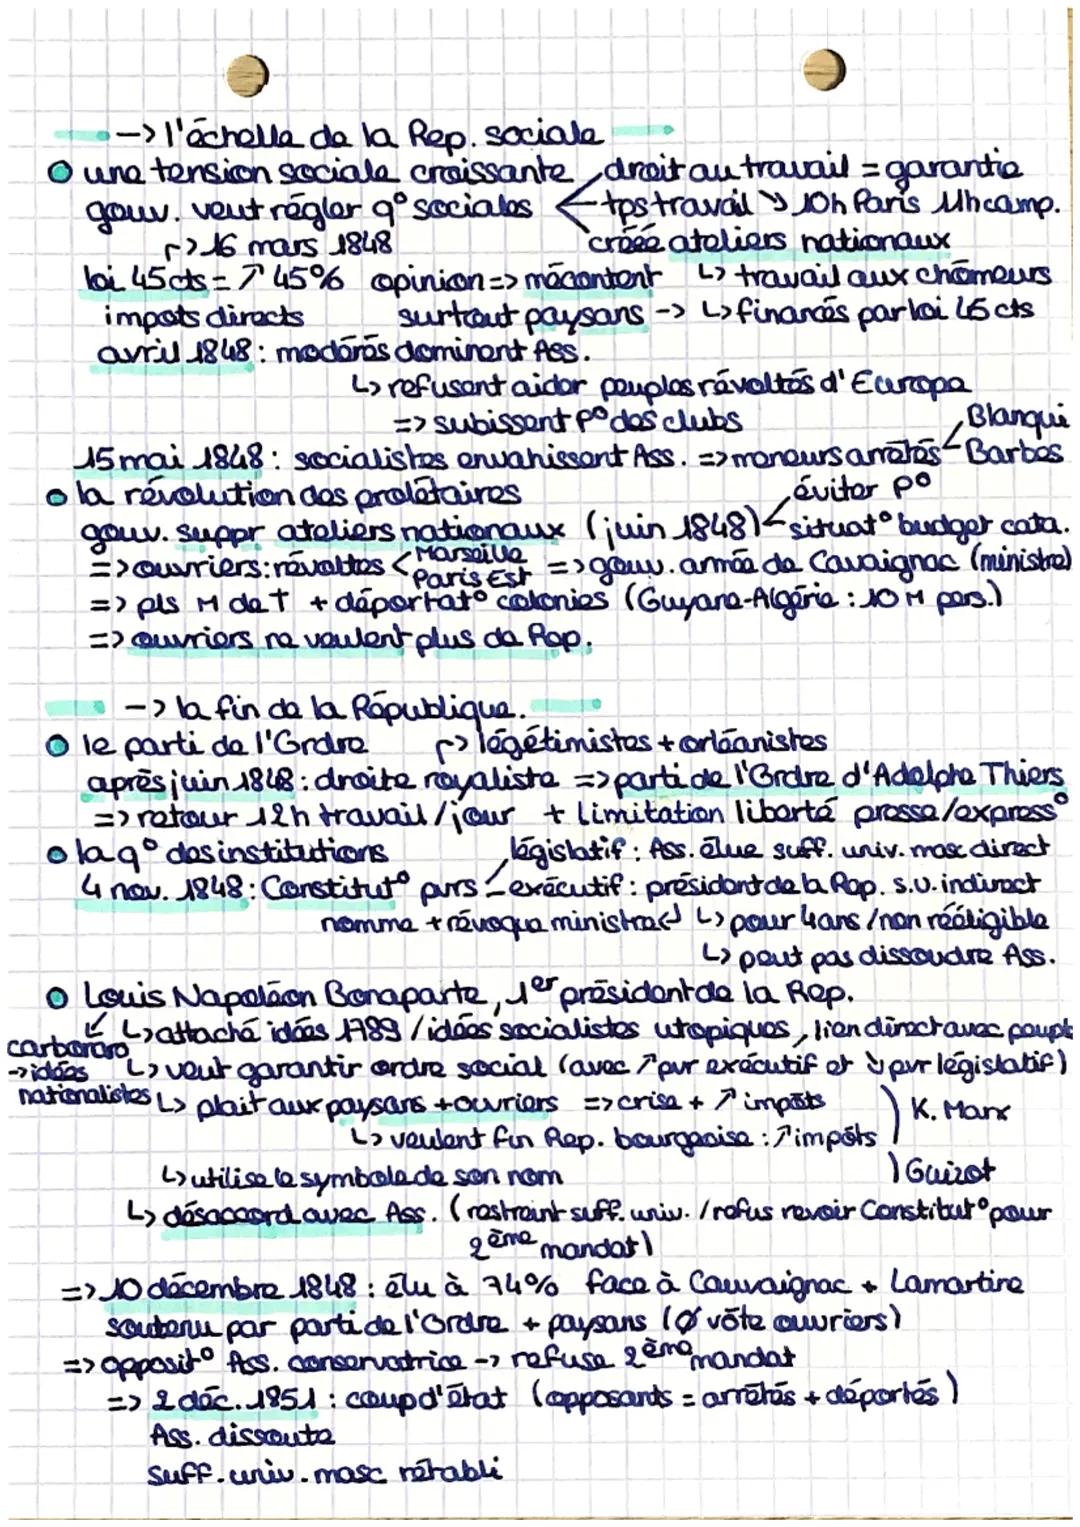 -> l'échelle de la Rep. sociale
une tension sociale croissante droit au travail = garantie
gouv. veut régler q° sociales tps travail ↘ 10h Paris 11h camp.
↱ 16 mars 1848 créée ateliers nationaux
loi 45cts = ↗ 45% opinion => mécontent ↳ travail aux chômeurs
impots directs surtout paysans -> ↳ financés par loi 45 cts
avril 1848 : modérés dominent Ass.
↳ refusent aider peuples révoltés d'Europe
=> subissent p° des clubs
15 mai 1848 : socialistes envahissent Ass. => meneurs arrêtés Blanqui Barbes
la révolution des prolétaires
gouv. suppr ateliers nationaux (juin 1848) éviter p° situat° budget cata.
=> ouvriers : révoltes Marseille Paris Est => gouv. armée de Cavaignac (ministre)
=> pls M de † + déportat° colonies (Guyane-Algérie : 10 M pers.)
=> ouvriers ne veulent plus de Rep.
-> la fin de la République.
le parti de l'Ordre ↱ légétimistes + orléanistes
après juin 1848 : droite royaliste => parti de l'Ordre d'Adolphe Thiers
=> retour 12h travail/jour + limitation liberté presse/express°
la q° des institutions législatif : Ass. élue suff. univ. masc direct
4 nov. 1848 : Constitut° pvrs exécutif : président de la Rep. s.u. indirect
nomme + révoque ministres ↲ ↳ pour 4ans / non rééligible
↳ peut pas dissoudre Ass.
Louis Napoléon Bonaparte, 1er président de la Rep.
↳ attaché idées 1789 / idées socialistes utopiques, lien direct avec peuple
carbonaro
-> idées ↳ veut garantir ordre social (avec ↗ pvr exécutif et ↘ pvr législatif)
nationalistes ↳ plait aux paysans + ouvriers => crise + ↗ impôts ) K. Marx
↳ veulent fin Rep. bourgeoise : ↗ impôts
↳ utilise le symbole de son nom ) Guizot
↳ désaccord avec Ass. (restreint suff. univ. / refus revoir Constitut° pour
2ème mandat)
=> 10 décembre 1848 : élu à 74% face à Cauvaignac + Lamartine
soutenu par parti de l'Ordre + paysans (Ø vôte ouvriers)
=> opposit° Ass. conservatrice -> refuse 2ème mandat
=> 2 déc. 1851 : coup d'état (opposants = arrêtés + déportés)
Ass. dissoute
suff. univ. masc rétabli